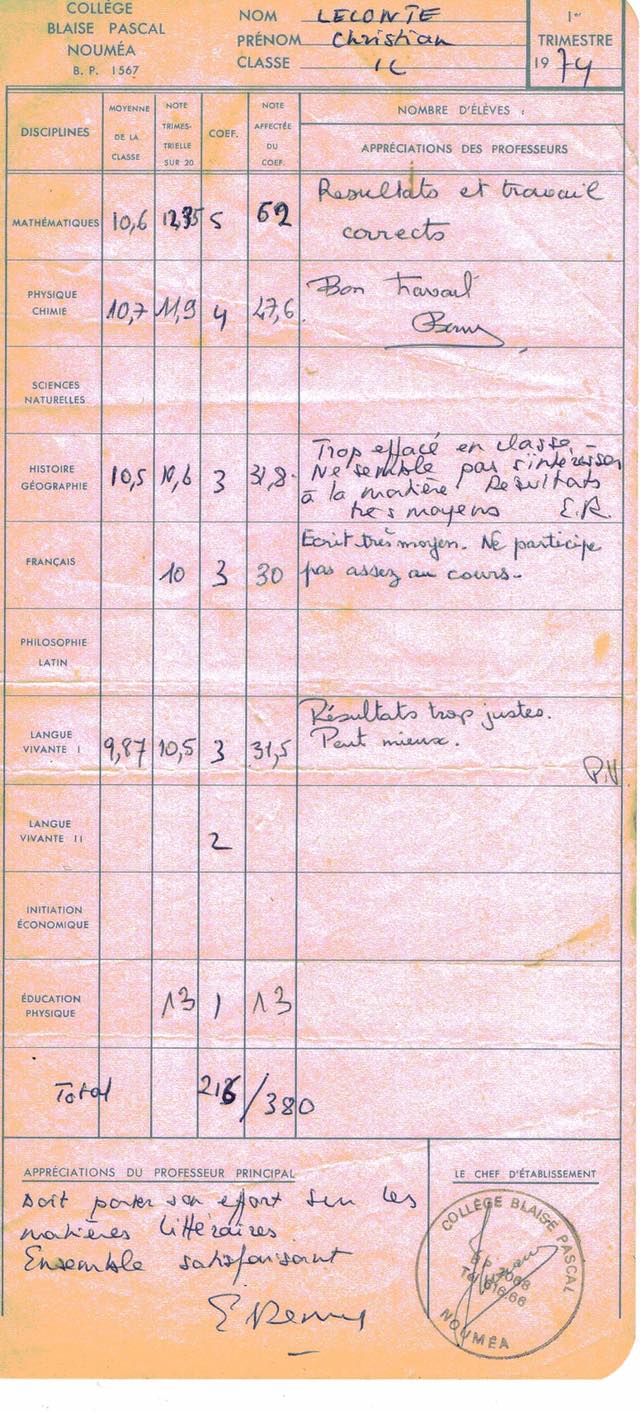 COLLÈGE
BLAISE PASCAL
NOUMÉA
B. P. 1567
NOM LECONTE
PRÉNOM Christian
CLASSE 1C
1er
TRIMESTRE
1974
DISCIPLINES
MOYENNE
DE LA
CLASSE
NOTE
TRIMES-
TRIELLE
SUR 20
COEF.
NOTE
AFFECTÉE
DU
COEF.
NOMBRE D'ÉLÈVES :
APPRÉCIATIONS DES PROFESSEURS
MATHÉMATIQUES 10,6 12,35 5 62
Resultats et travail
corrects
PHYSIQUE
CHIMIE 10,7 11,9 4 47,6
Bon travail
SCIENCES
NATURELLES
HISTOIRE
GÉOGRAPHIE 10,5 10,6 3 31,8
Trop effacé en classe -
Ne semble pas s'intéresser
à la matière! Resultats
très moyens E.R.
FRANÇAIS 10 3 30
Ecrit très moyen. Ne participe
pas assez au cours.
PHILOSOPHIE
LATIN
LANGUE
VIVANTE I 9,87 10,5 3 31,5
Résultats trop justes.
Peut mieux.
P.V
LANGUE
VIVANTE II 2
INITIATION
ÉCONOMIQUE
ÉDUCATION
PHYSIQUE 13 1 13
Total 216 / 380
APPRÉCIATIONS DU PROFESSEUR PRINCIPAL
Doit porter son effort sur les
matières littéraires
Ensemble satisfaisant
LE CHEF D'ÉTABLISSEMENT
COLLÈGE BLAISE PASCAL
NOUMÉA